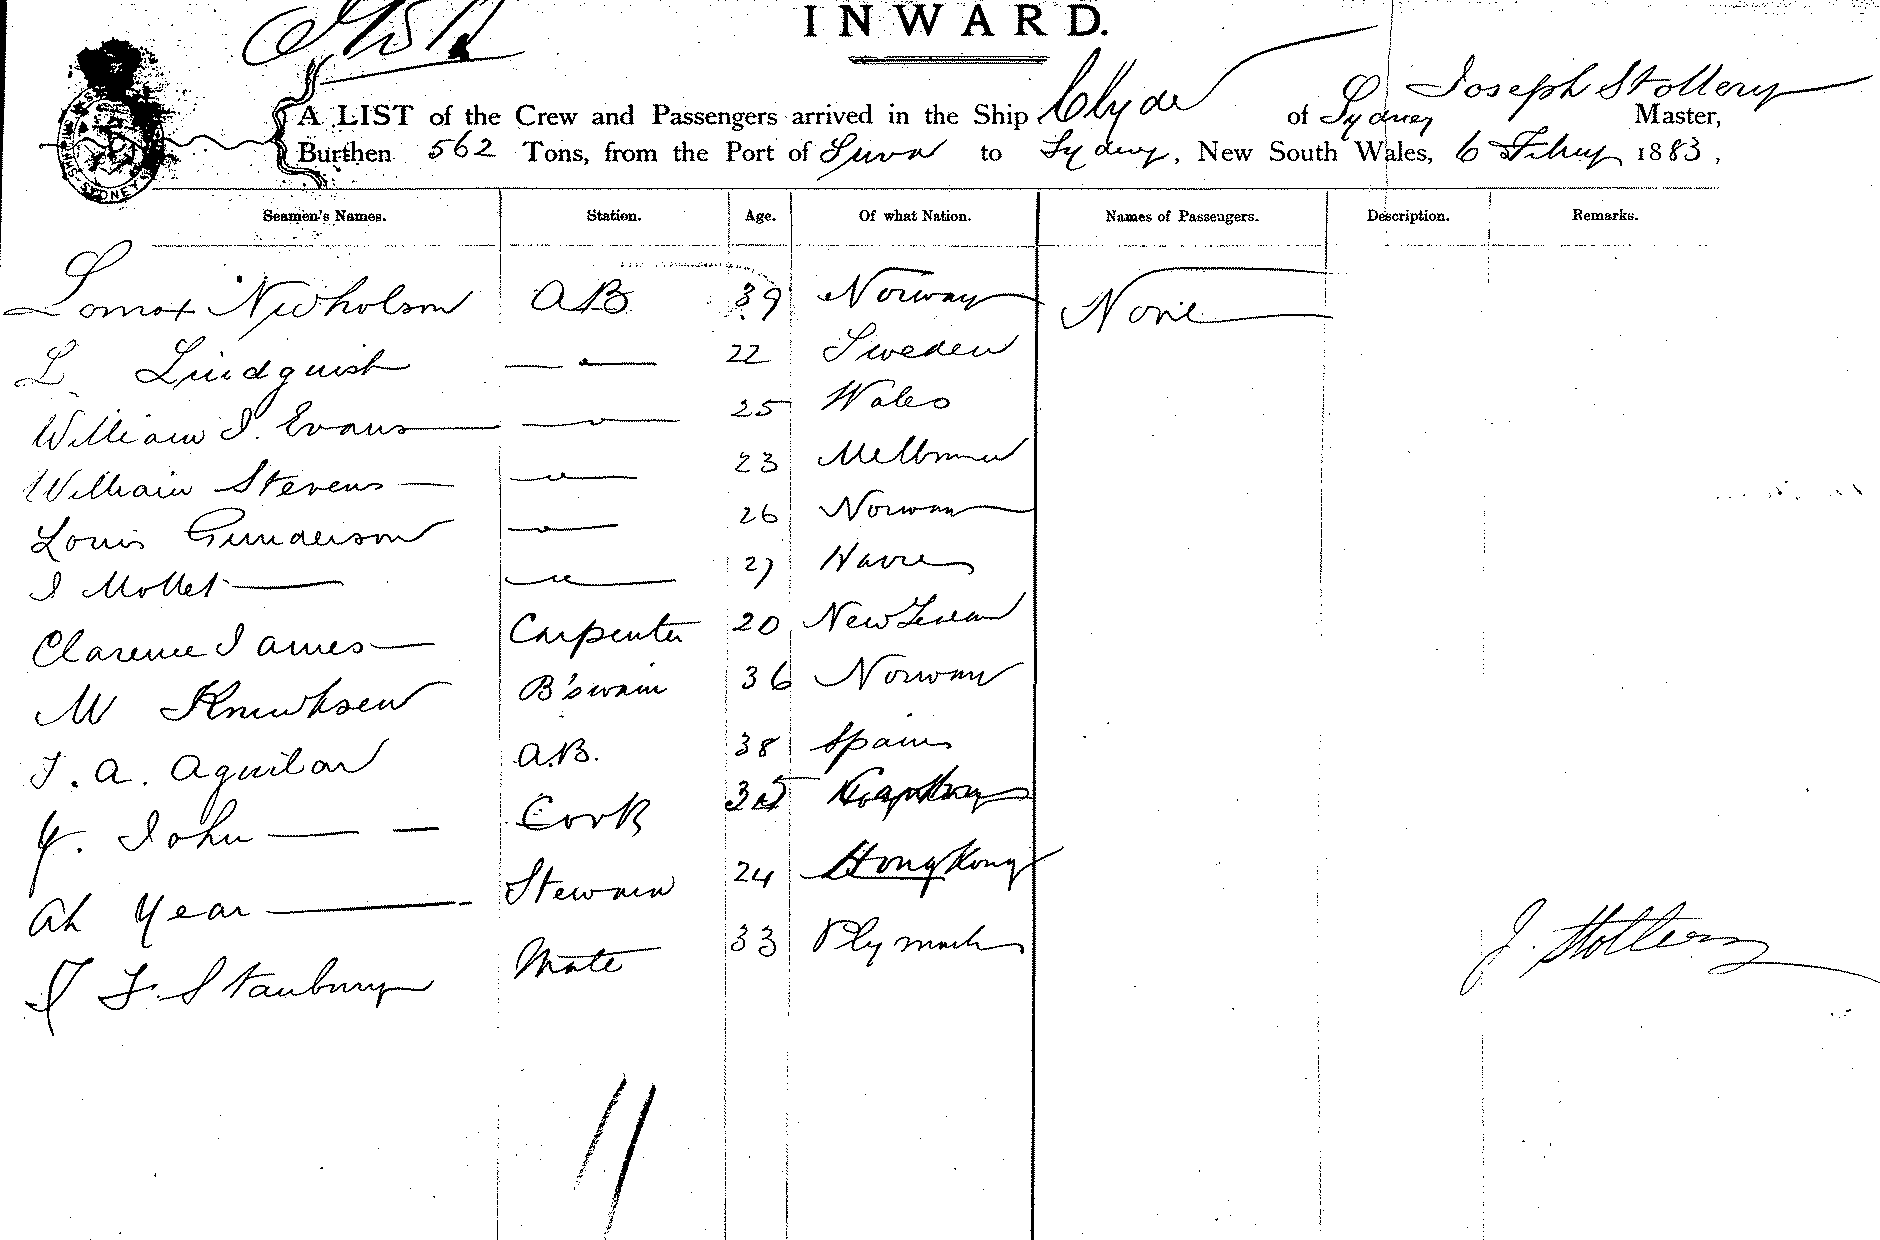 INWARD.
A LIST of the Crew and Passengers arrived in the Ship Clyde of Sydney Joseph Stollery Master,
Burthen 562 Tons, from the Port of Suva to Sydney, New South Wales, 6 Febry 1883,
Seamen's Names. Station. Age. Of what Nation. Names of Passengers. Description. Remarks.
Lomax Nicholson AB 39 Norway None
L Lindquist 22 Sweden
William J. Evans 25 Wales
William Stevens 23 Melbourne
Louis Gunderson 26 Norway
J Mollet 27 Havre
Clarence James Carpenter 20 New Zealand
M B'swain 36 Norway
J. A. Aguilar A.B. 38 Spain
Y. John Cook 35
Ah Year Steward 24 HongKong
J F. Stanbury Mate 33 Plymouth
J. Stollery
11